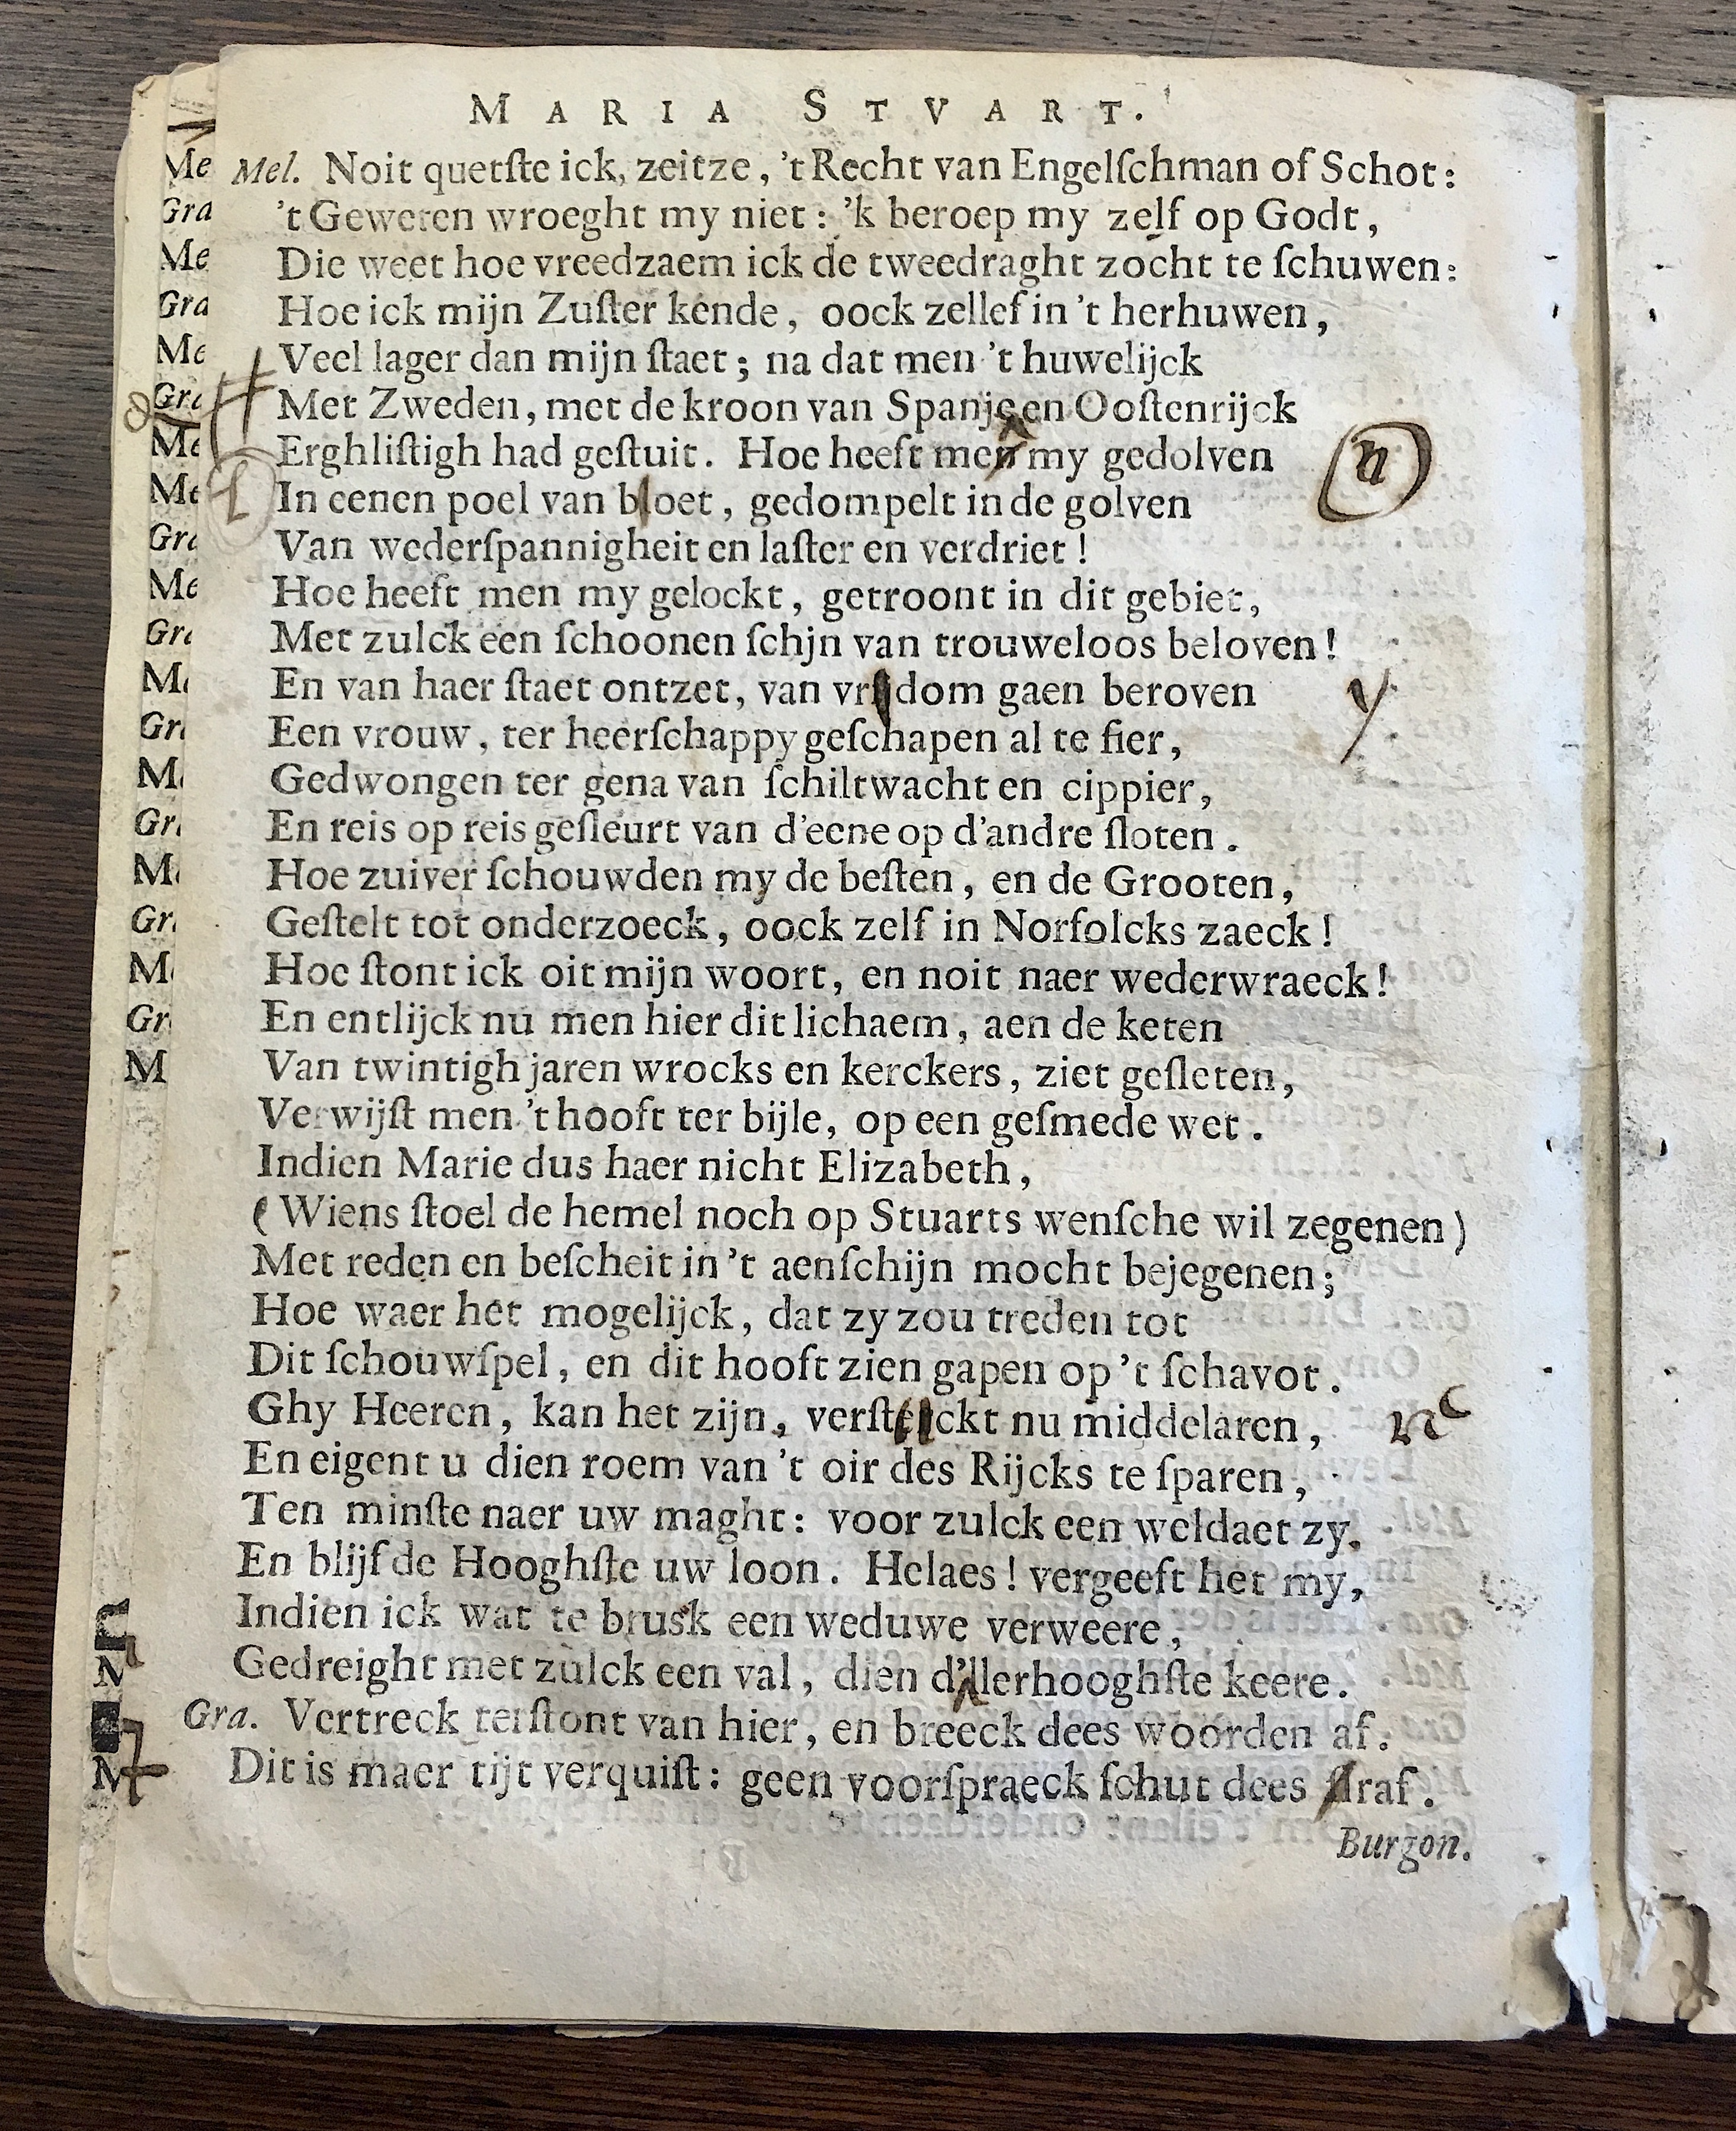 MARIA STVART.
Mel. Noit quetſte ick, zeitze, 't Recht van Engelſchman of Schot:
't Geweten wroeght my niet: 'k beroep my zelf op Godt,
Die weet hoe vreedzaem ick de tweedraght zocht te ſchuwen:
Hoe ick mijn Zuſter kende, oock zellef in 't herhuwen,
Veel lager dan mijn ſtaet; na dat men 't huwelijck
Met Zweden, met de kroon van Spanje en Ooſtenrijck
Erghliſtigh had geſtuit. Hoe heeft men my gedolven
n
In eenen poel van bloet, gedompelt in de golven
Van wederſpannigheit en laſter en verdriet!
Hoe heeft men my gelockt, getroont in dit gebiet,
Met zulck een ſchoonen ſchjn van trouweloos beloven!
En van haer ſtaet ontzet, van vrydom gaen beroven
y
Een vrouw, ter heerſchappy geſchapen al te fier,
Gedwongen ter gena van ſchiltwacht en cippier,
En reis op reis geſleurt van d'eene op d'andre ſloten.
Hoe zuiver ſchouwden my de beſten, en de Grooten,
Geſtelt tot onderzoeck, oock zelf in Norfolcks zaeck!
Hoe ſtont ick oit mijn woort, en noit naer wederwraeck!
En entlijck nu men hier dit lichaem, aen de keten
Van twintigh jaren wrocks en kerckers, ziet geſleten,
Verwijſt men 't hooft ter bijle, op een geſmede wet.
Indien Marie dus haer nicht Elizabeth,
(Wiens ſtoel de hemel noch op Stuarts wenſche wil zegenen)
Met reden en beſcheit in 't aenſchijn mocht bejegenen;
Hoe waer het mogelijck, dat zy zou treden tot
Dit ſchouwſpel, en dit hooft zien gapen op 't ſchavot.
Ghy Heeren, kan het zijn, verſtreckt nu middelaren,
En eigent u dien roem van 't oir des Rijcks te ſparen,
Ten minſte naer uw maght: voor zulck een weldaet zy.
En blijf de Hooghſte uw loon. Helaes! vergeeft het my,
Indien ick wat te brusk een weduwe verweere,
Gedreight met zulck een val, dien d'allerhooghſte keere.
Gra. Vertreck terſtont van hier, en breeck dees woorden af.
Dit is maer tijt verquiſt: geen voorſpraeck ſchut dees ſtraf.
Burgon.